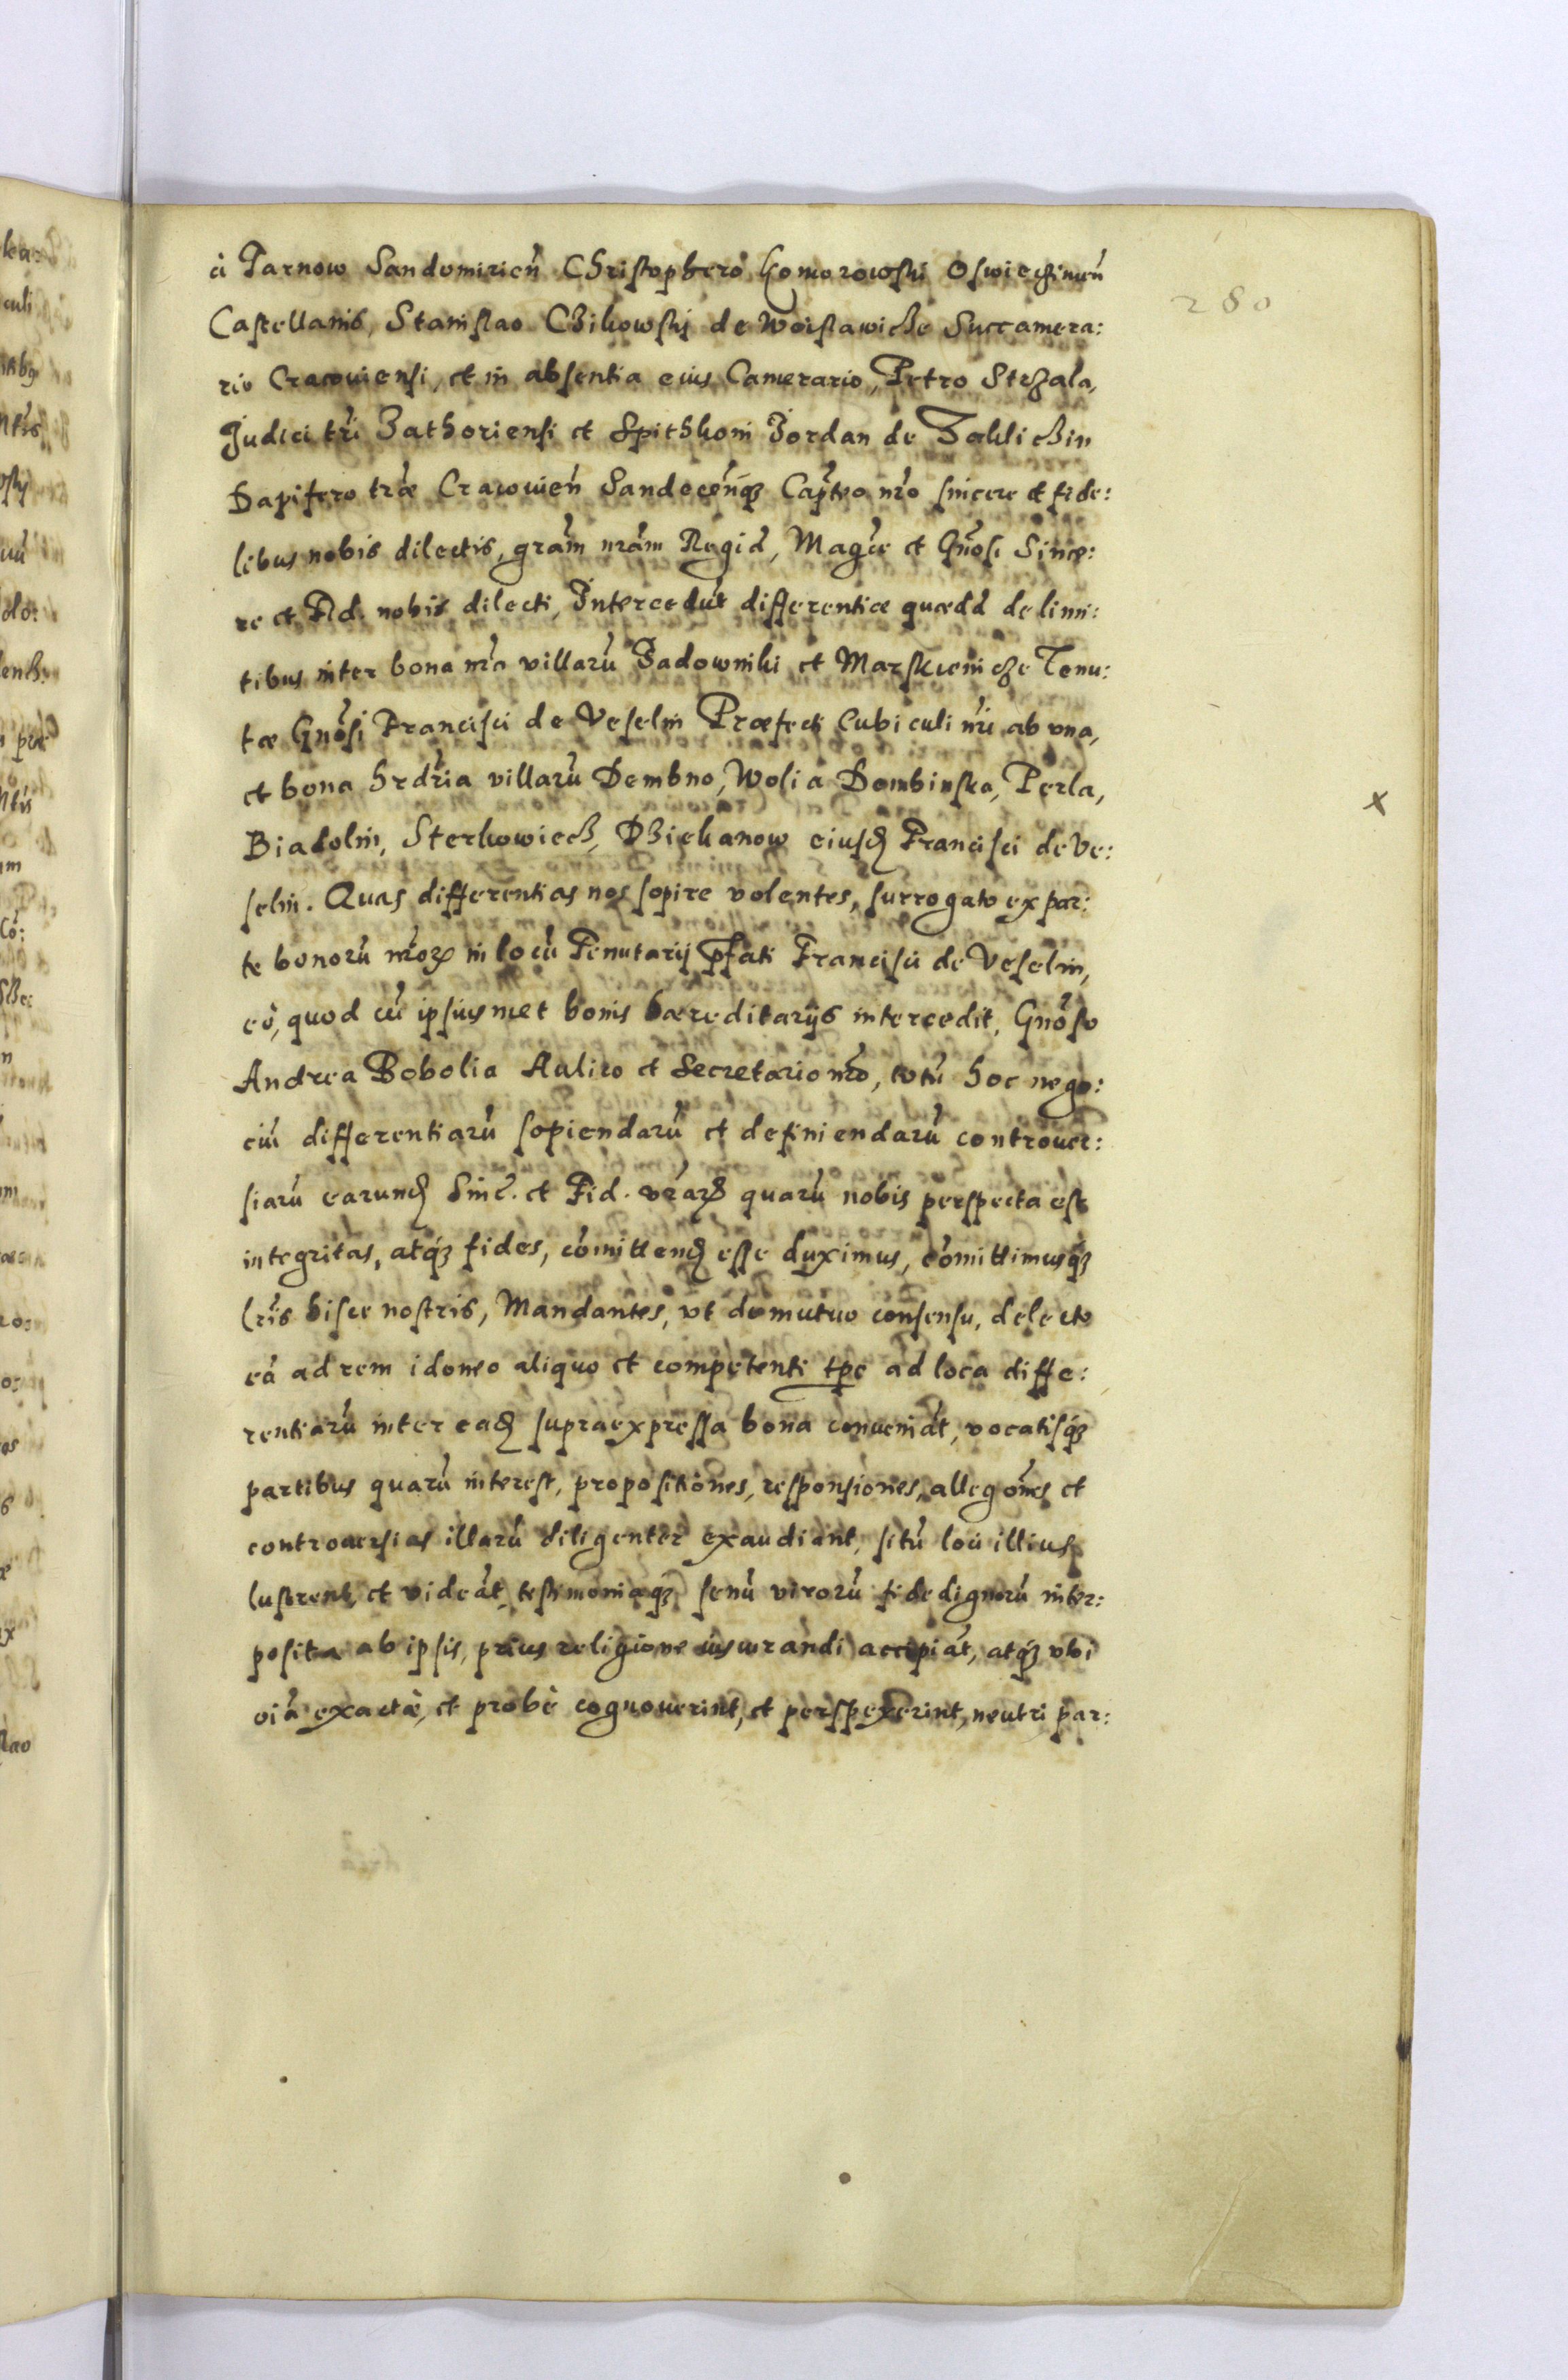 280
à Tarnow Sandomirieñ Christophero Komorowski Oswieczimeñ
Castellanis, Stanislao Czikowskj de Woislawicze Succamera:
rio Cracoviensi, et in absentia eius Camerario, Petro Strzala,
Judici tri Zathoriensi et Spithkoni Jordan de Zaklichin
Dapifero træ Cracovieñ Sandecenq3 Capteo nro sincere et fide:
libus nobis dilectis, gram nram Regia, Magce et Gnose Since:
re et Fid. nobis dilecti, Intercedut differentiæ quædã de limi:
tibus inter bona nra villarũ Jadowniki et Maszkienicze Tenu:
tæ Gnosi Francisci de Veselin Præfecti Cubiculi nri ab vna,
et bona hrdria villarũ Dembno, Wolia Dombinska, Perla,
Biadolin, Sterkowiecz, Dziekanow eiusd Francisci de Ve:
selin. Quas differentias nos sopire volentes, surrogato ex par:
te bonorũ nror in locũ Tenutarij pfati Francisci de Veselin,
eò, quod cũ ipsiusmet bonis hæreditarijs intercedit, Gnoso
Andrea Bobolia Aulico et Secretario nro, totũ hoc nego:
ciũ differentiarũ sopiendarũ et definiendarũ controuer:
siarũ earund Sinc. et Fid. vrar quarũ nobis perspecta est
integritas, atq3 fides, cõmittend esse duximus, cõmittimusq3
lris hisce nostris, Mandantes, vt de mutuo consensu, delecto
eã ad rem idoneo aliquo et competenti tpe ad loca diffe:
rentiarũ inter ead supraexpressa bona conueniãt, vocatisq3
partibus quarũ interest, propositiones, responsiones, allegões et
controuersias illarũ diligenter exaudiant, sitũ loci illius
lustrent, et videãt, testimoniaq3 senũ virorũ fide dignorũ inter:
posita ab ipsis, prius religione iusiurandi accipiãt, atq3 vbi
oia exactè, et probè cognouerint, et perspexerint, neutri par:
x